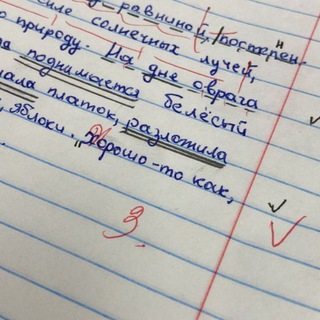 равниной, постепен-
силе солнечных лучей,
природу. На дне оврага
поднимается белёсый
платок, разложила
яблоки. „Хорошо-то как,
3.